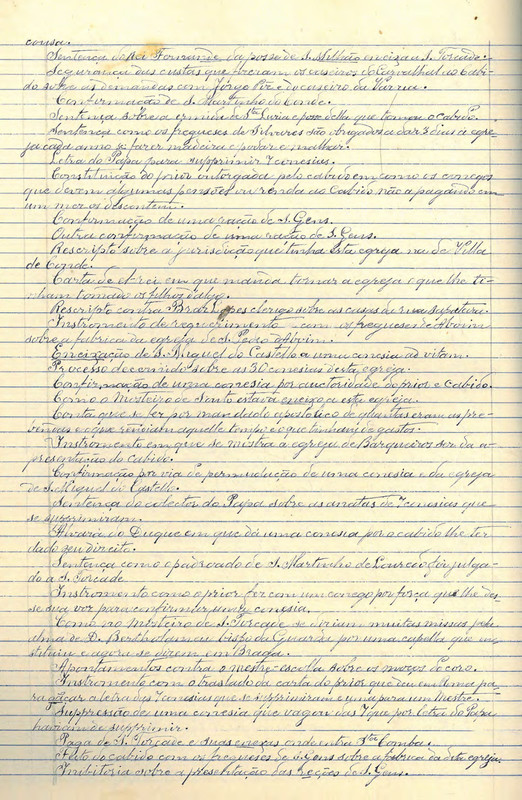 cousa.
Sentença do Rei Fernando da posse de S. Milhão enexa a S. Torcade.
Segurança das custas que fizeram os caseiros do Carvalhal ao Cabi-
do sobre as demandas com Jorge Vaz e do caseiro da Varzea.
Confirmação de S. Martinho do Conde.
Sentença sobre a ermida de Sta Luzia e posse della que tomou o Cabido.
Sentença como os freguezes de Silvares são obrigados a dar 3 dias á egre-
ja cada anno se fazer madeira e podar e malhar.
Letra do Papa para supprimir 7 conesias.
Constituição do prior outorgada pelo cabido em como os conegos
que devem algumas pensões ou renda ao Cabido não a pagando em
um mez os descontem.
Confirmação de uma ração de S. Gens.
Outra confirmação de uma ração de S. Gens.
Rescripto sobre a jurisdicção que tinha esta egreja na de Villa
de Conde.
Carta de el-rei em que manda tornar a egreja o que lhe ti-
nham tomado os filhos d'algo.
Rescripto contra Braz clerigo sobre as casas de sua sepultura.
Instromento de requerimento com os freguezes de Aboim
sobre a fabrica da egreja de S. Pedro d'Aboim.
Enexação de S. Miguel do Castello a uma conesia ad vitam.
Processo decorrido sobre as 30 conesias desta egreja.
Confirmação de uma conesia por auctoridade do prior e Cabido.
Como o Mosteiro de Souto estava enexo a esta egreja.
Conta que se fez por mandado apostolico de quantas eram as pre-
bendas e o que rendiam aquelle tempo e o que tinham de gastos.
Instromento em que se mostra a egreja de Barqueiros ser da a-
presentação do Cabido.
Confirmação por via de permudação de uma conesia e da egreja
de S. Miguel do Castello.
Sentença do colector do Papa sobre as anatas de 7 conesias que
se suprimiram.
Alvará do Duque em que dá uma conesia por o cabido lhe ter
dado seu direito.
Sentença como o padroado de S. Martinho de Lourdo foi julga-
do a S. Torcade.
Instromento como o prior fez com um conego por força que lhe des-
se sua voz para confirmar uma conesia.
Como no Mosteiro de S. Torcade se diziam muitas missas pela
alma de D. Bartholameu bispo da Guarda por uma capella que ins-
tituiu e agora se dizem em Braga.
Apontamentos contra o mestre-escolla sobre os moços do coro.
Instromento com o traslado da carta do prior que deu em Roma pa-
ra a letra das 7 conesias que se supprimiram e uma para um Mestre.
Suppressão de uma conesia que vagou das 7 que por letra do Papa
haviam de supprimir.
Paga de S. Torcade e suas enexas onde entra Sta Comba.
Auto do cabido com os freguezes de S. Gens sobre a fabrica da dita egreja.
Inibitoria sobre a presentação das rações de S. Gens.